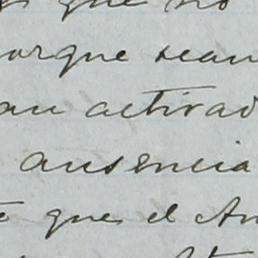 que no
orque sean
an activad
ausencia
que el An